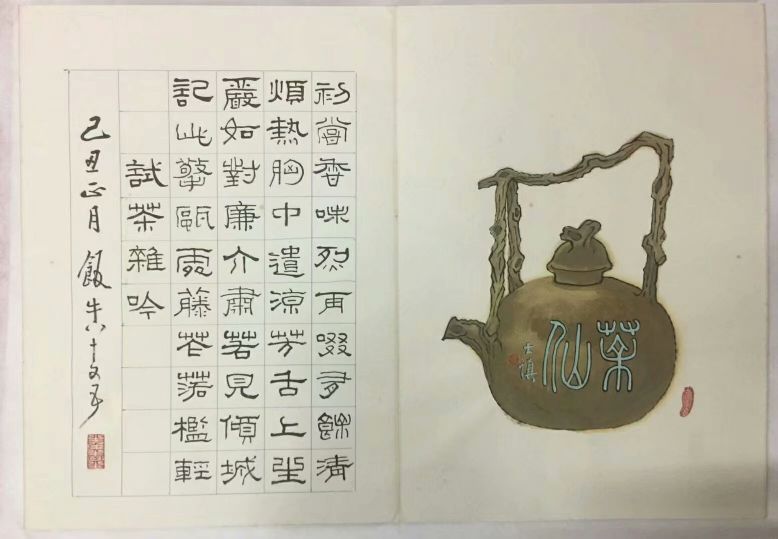 初嘗香味烈再啜有餘清
煩熱胸中遣涼芳舌上生
嚴如對廉介肅若見傾城
記此擎甌處藤花落檻輕
試茶雜吟
己丑正月 飯牛八十又五
茶仙